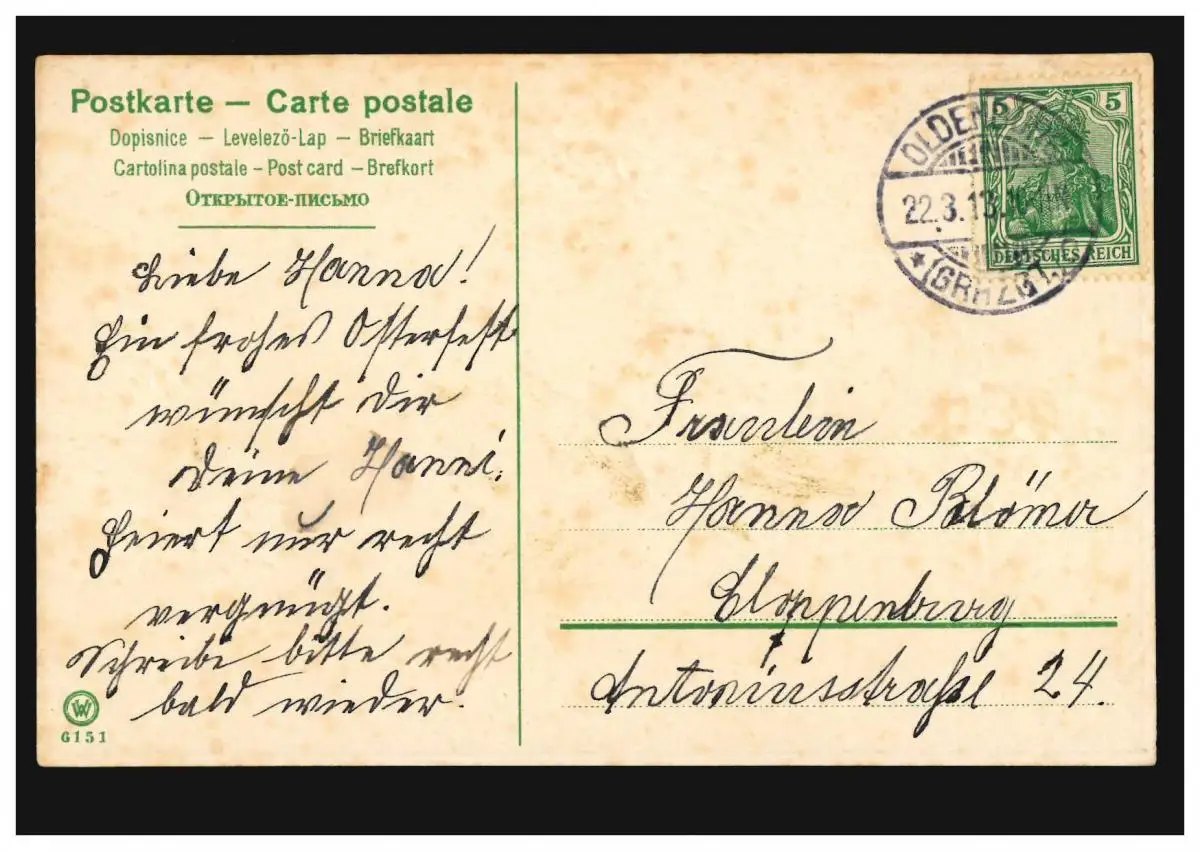 Postkarte — Carte postale
Dopisnice — Levelezö-Lap — Briefkaart
Cartolina postale – Post card – Brefkort
Открытое-письмо
Liebe Hanna!
Ein frohes Osterfest
wünscht Dir
Deine Hanni.
Feiert nur recht
vergnügt.
Schreibe bitte recht
bald wieder.
W
G151
OLDEN
22.3.13.
* (GRHZGT.)
5 5
DEUTSCHES REICH
Fräulein
Hanna Blömer
Cloppenburg
Antoniusstraße 24.